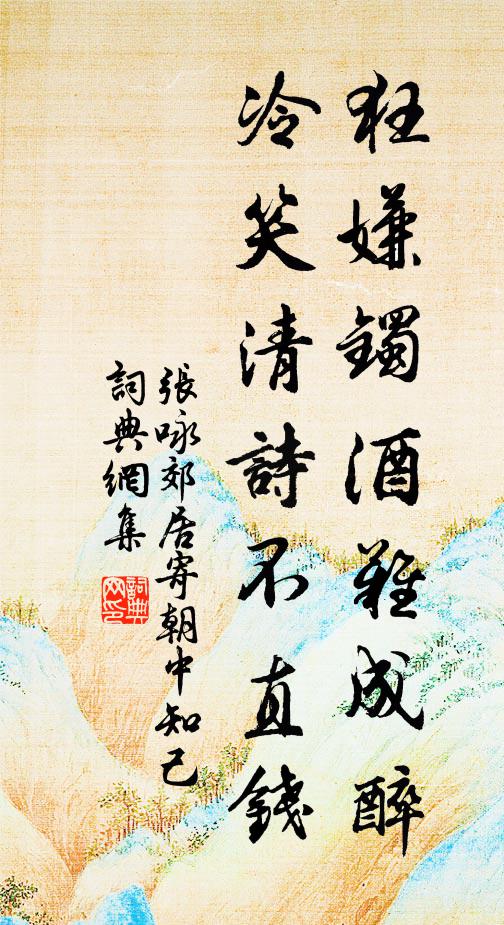 狂嫌鐲酒難成醉
冷笑清詩不直錢
張咏郊居寄朝中知己
詞典網集
詞典